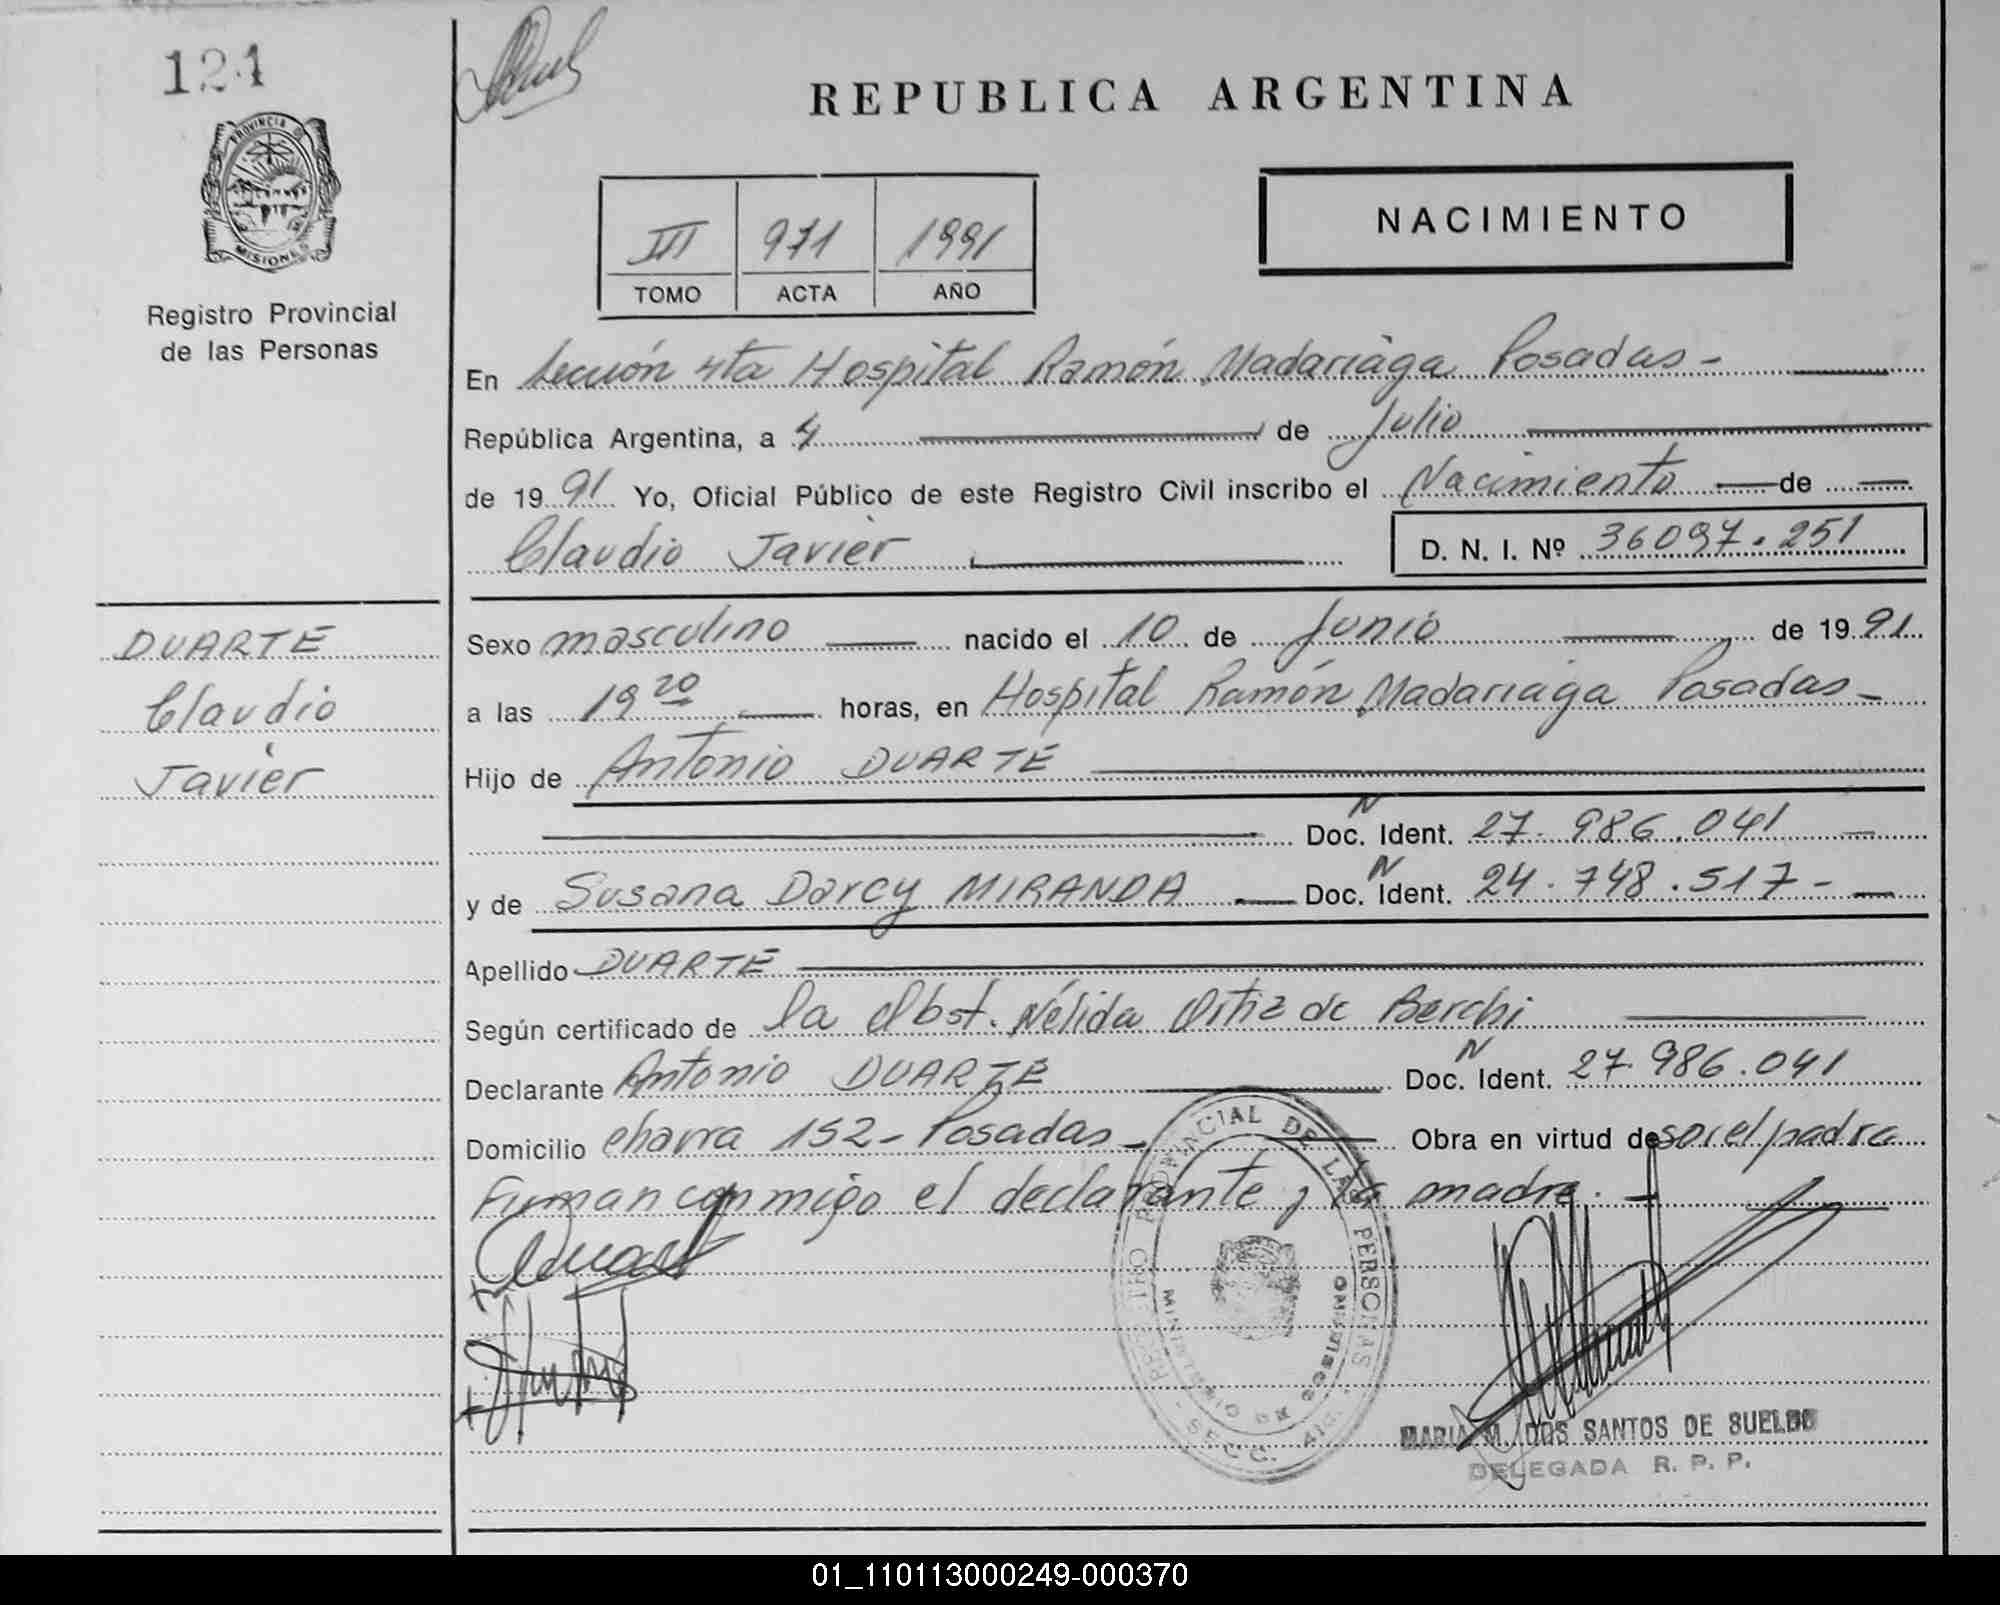 124
REPUBLICA ARGENTINA
PROVINCIA DE MISIONES
Registro Provincial
de las Personas
III 971 1991
TOMO ACTA AÑO
NACIMIENTO
En Sección 4ta Hospital Ramón Madariaga Posadas -
República Argentina, a 4 de Julio
de 1991 Yo, Oficial Público de este Registro Civil inscribo el Nacimiento de
Claudio Javier D. N. I. Nº 36097.251
DUARTE
Claudio
Javier
Sexo masculino nacido el 10 de Junio de 1991
a las 19 20 horas, en Hospital Ramón Madariaga Posadas -
Hijo de Antonio DUARTE
Doc. N Ident. 27.986.041
y de Susana Darcy MIRANDA Doc. N Ident. 24.748.517 -
Apellido DUARTE
Según certificado de la Obst. Nélida Ortiz de Berchi
Declarante Antonio DUARTE Doc. N Ident. 27.986.041
Domicilio chacra 152 - Posadas - Obra en virtud de ser el padre
Firman conmigo el declarante y la madre. -
REGISTRO PROVINCIAL DE LAS PERSONAS
MINISTERIO DE GOBIERNO
MARIA M. DOS SANTOS DE SUELDO
DELEGADA R. P. P.
01_110113000249-000370